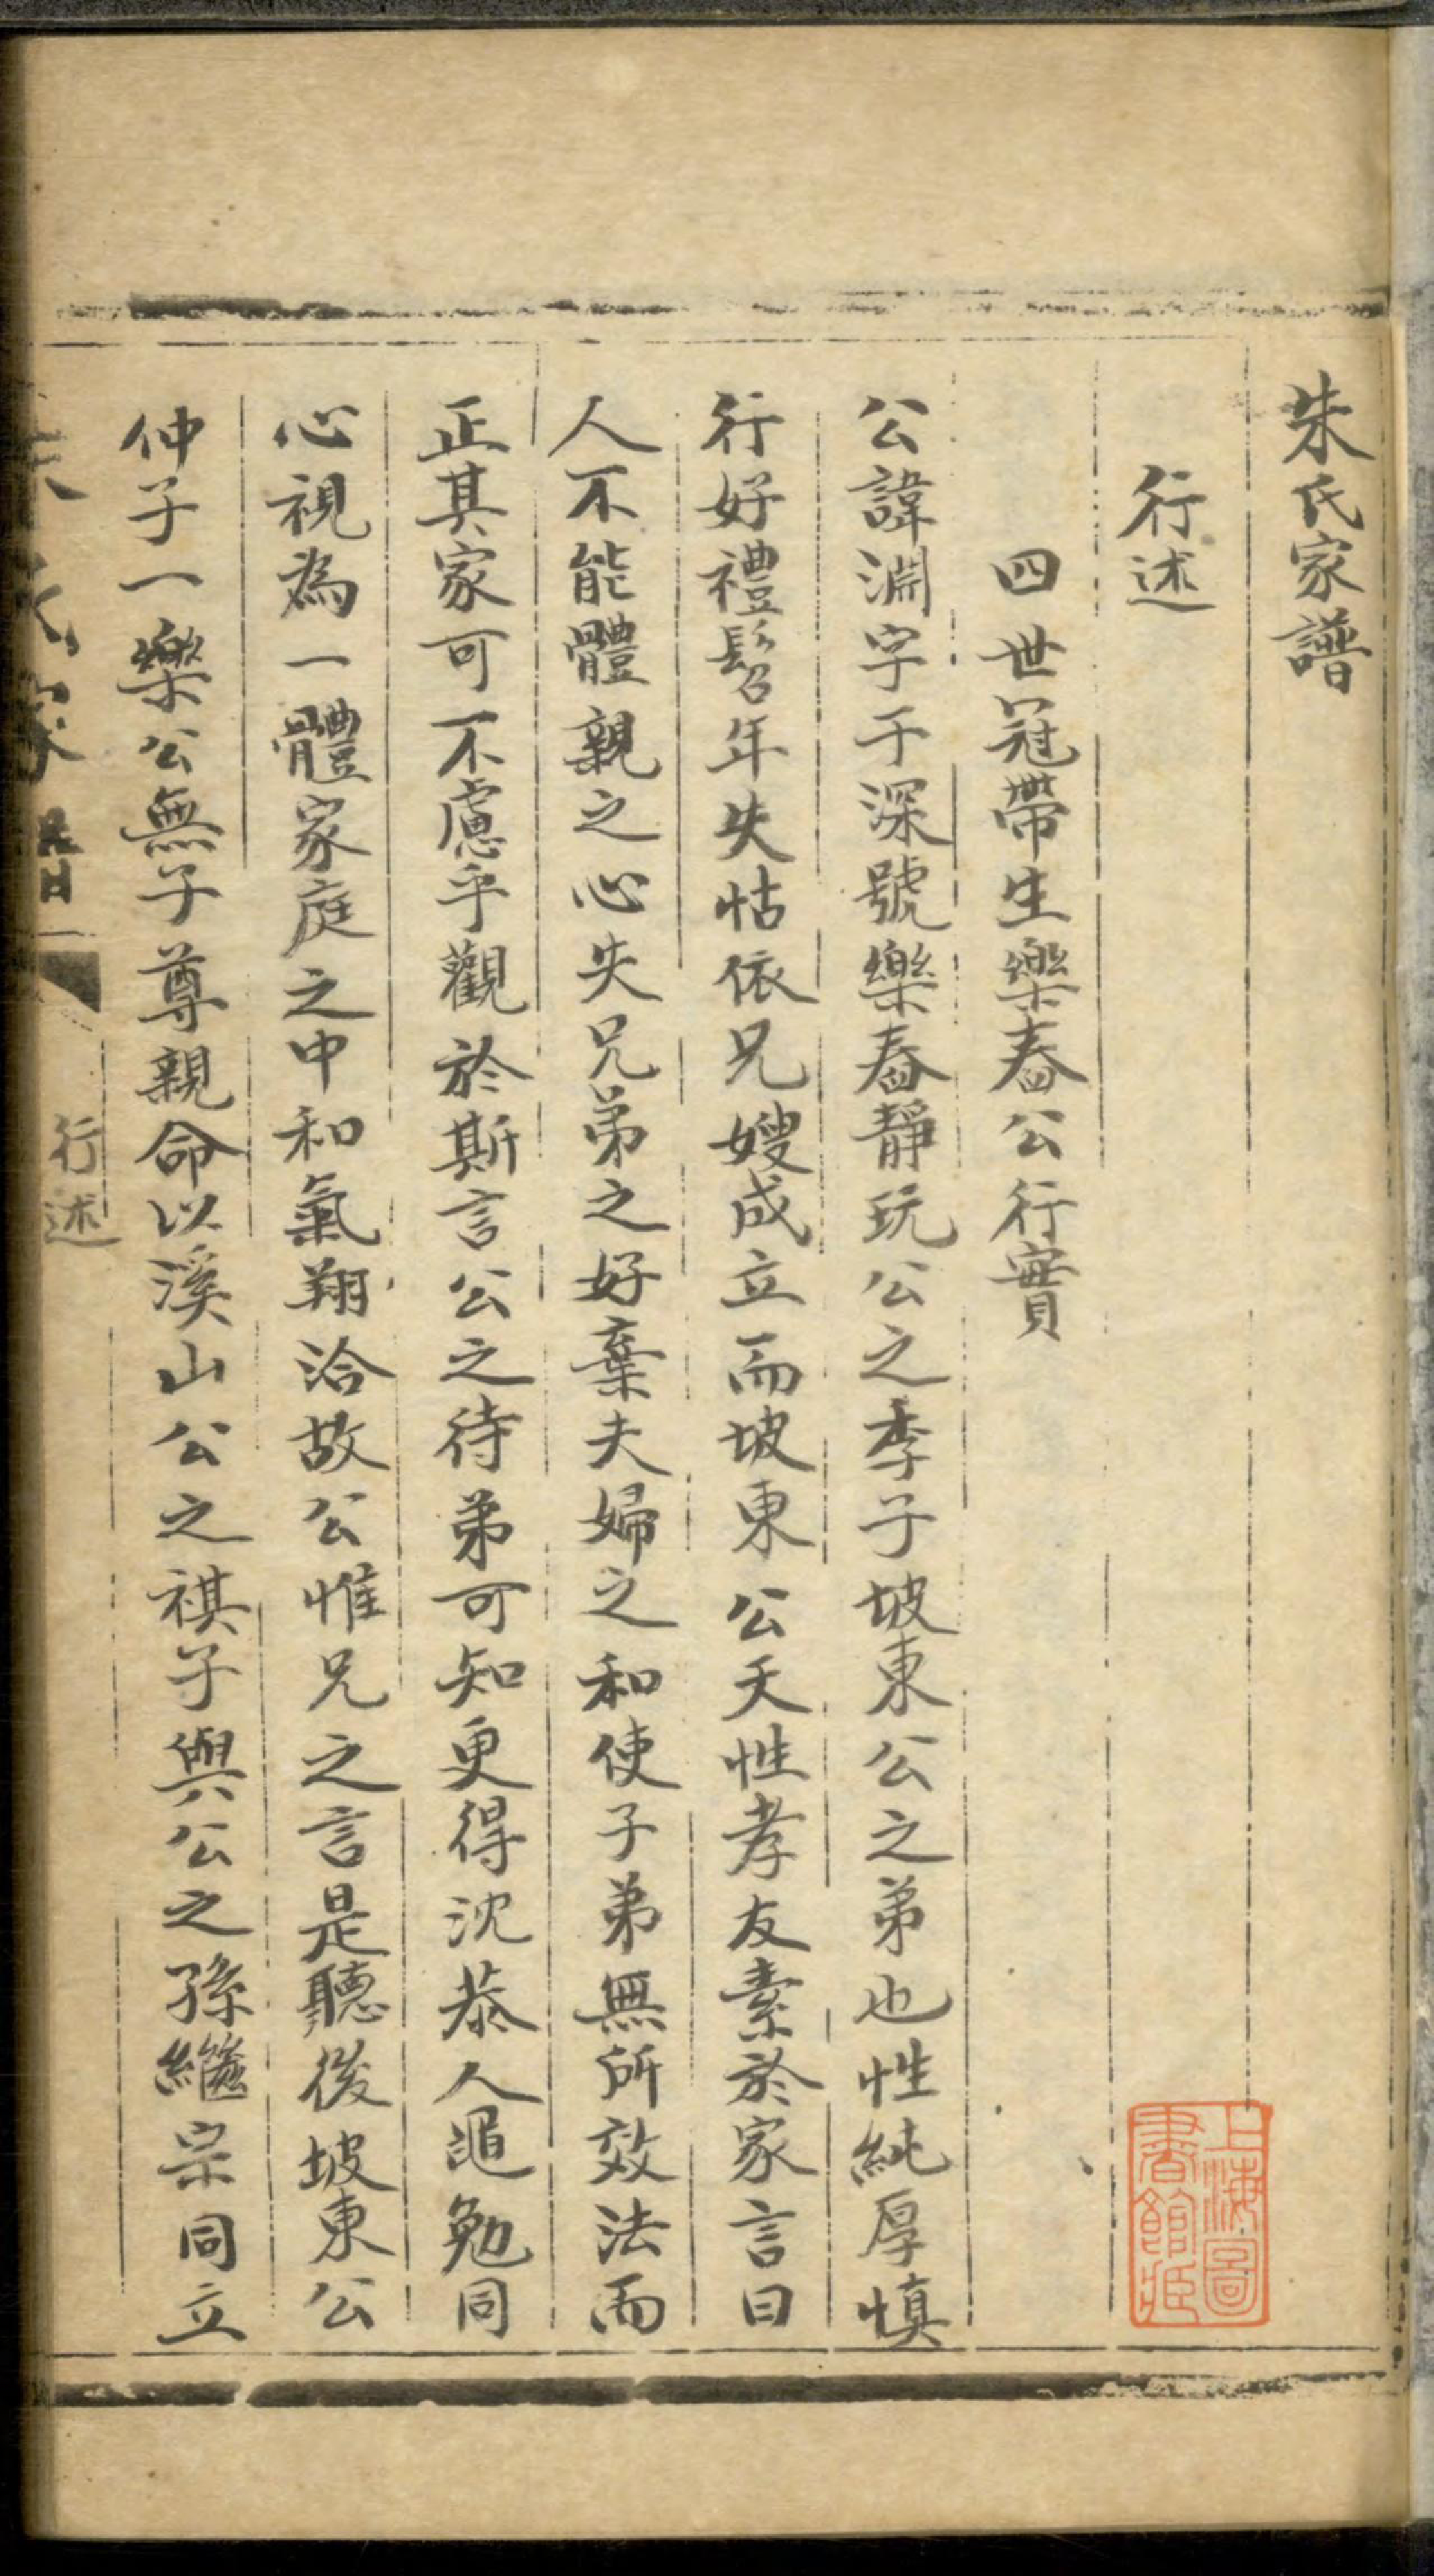 朱氏家譜
行述
四世冠帶生樂春公行實
公諱淵字于深號樂春靜玩公之季子坡東公之弟也性純厚慎
行好禮髫年失怙依兄嫂成立而坡東公天性孝友素於家言曰
人不能體親之心失兄弟之好棄夫婦之和使子弟無所效法而
正其家可不慮乎觀於斯言公之待弟可知更得沈恭人黽勉同
心視為一體家庭之中和氣翔洽故公惟兄之言是聽後坡東公
仲子一樂公無子尊親命以溪山公之祺子與公之孫繼宗同立
朱氏家譜
行述
上海圖書館藏